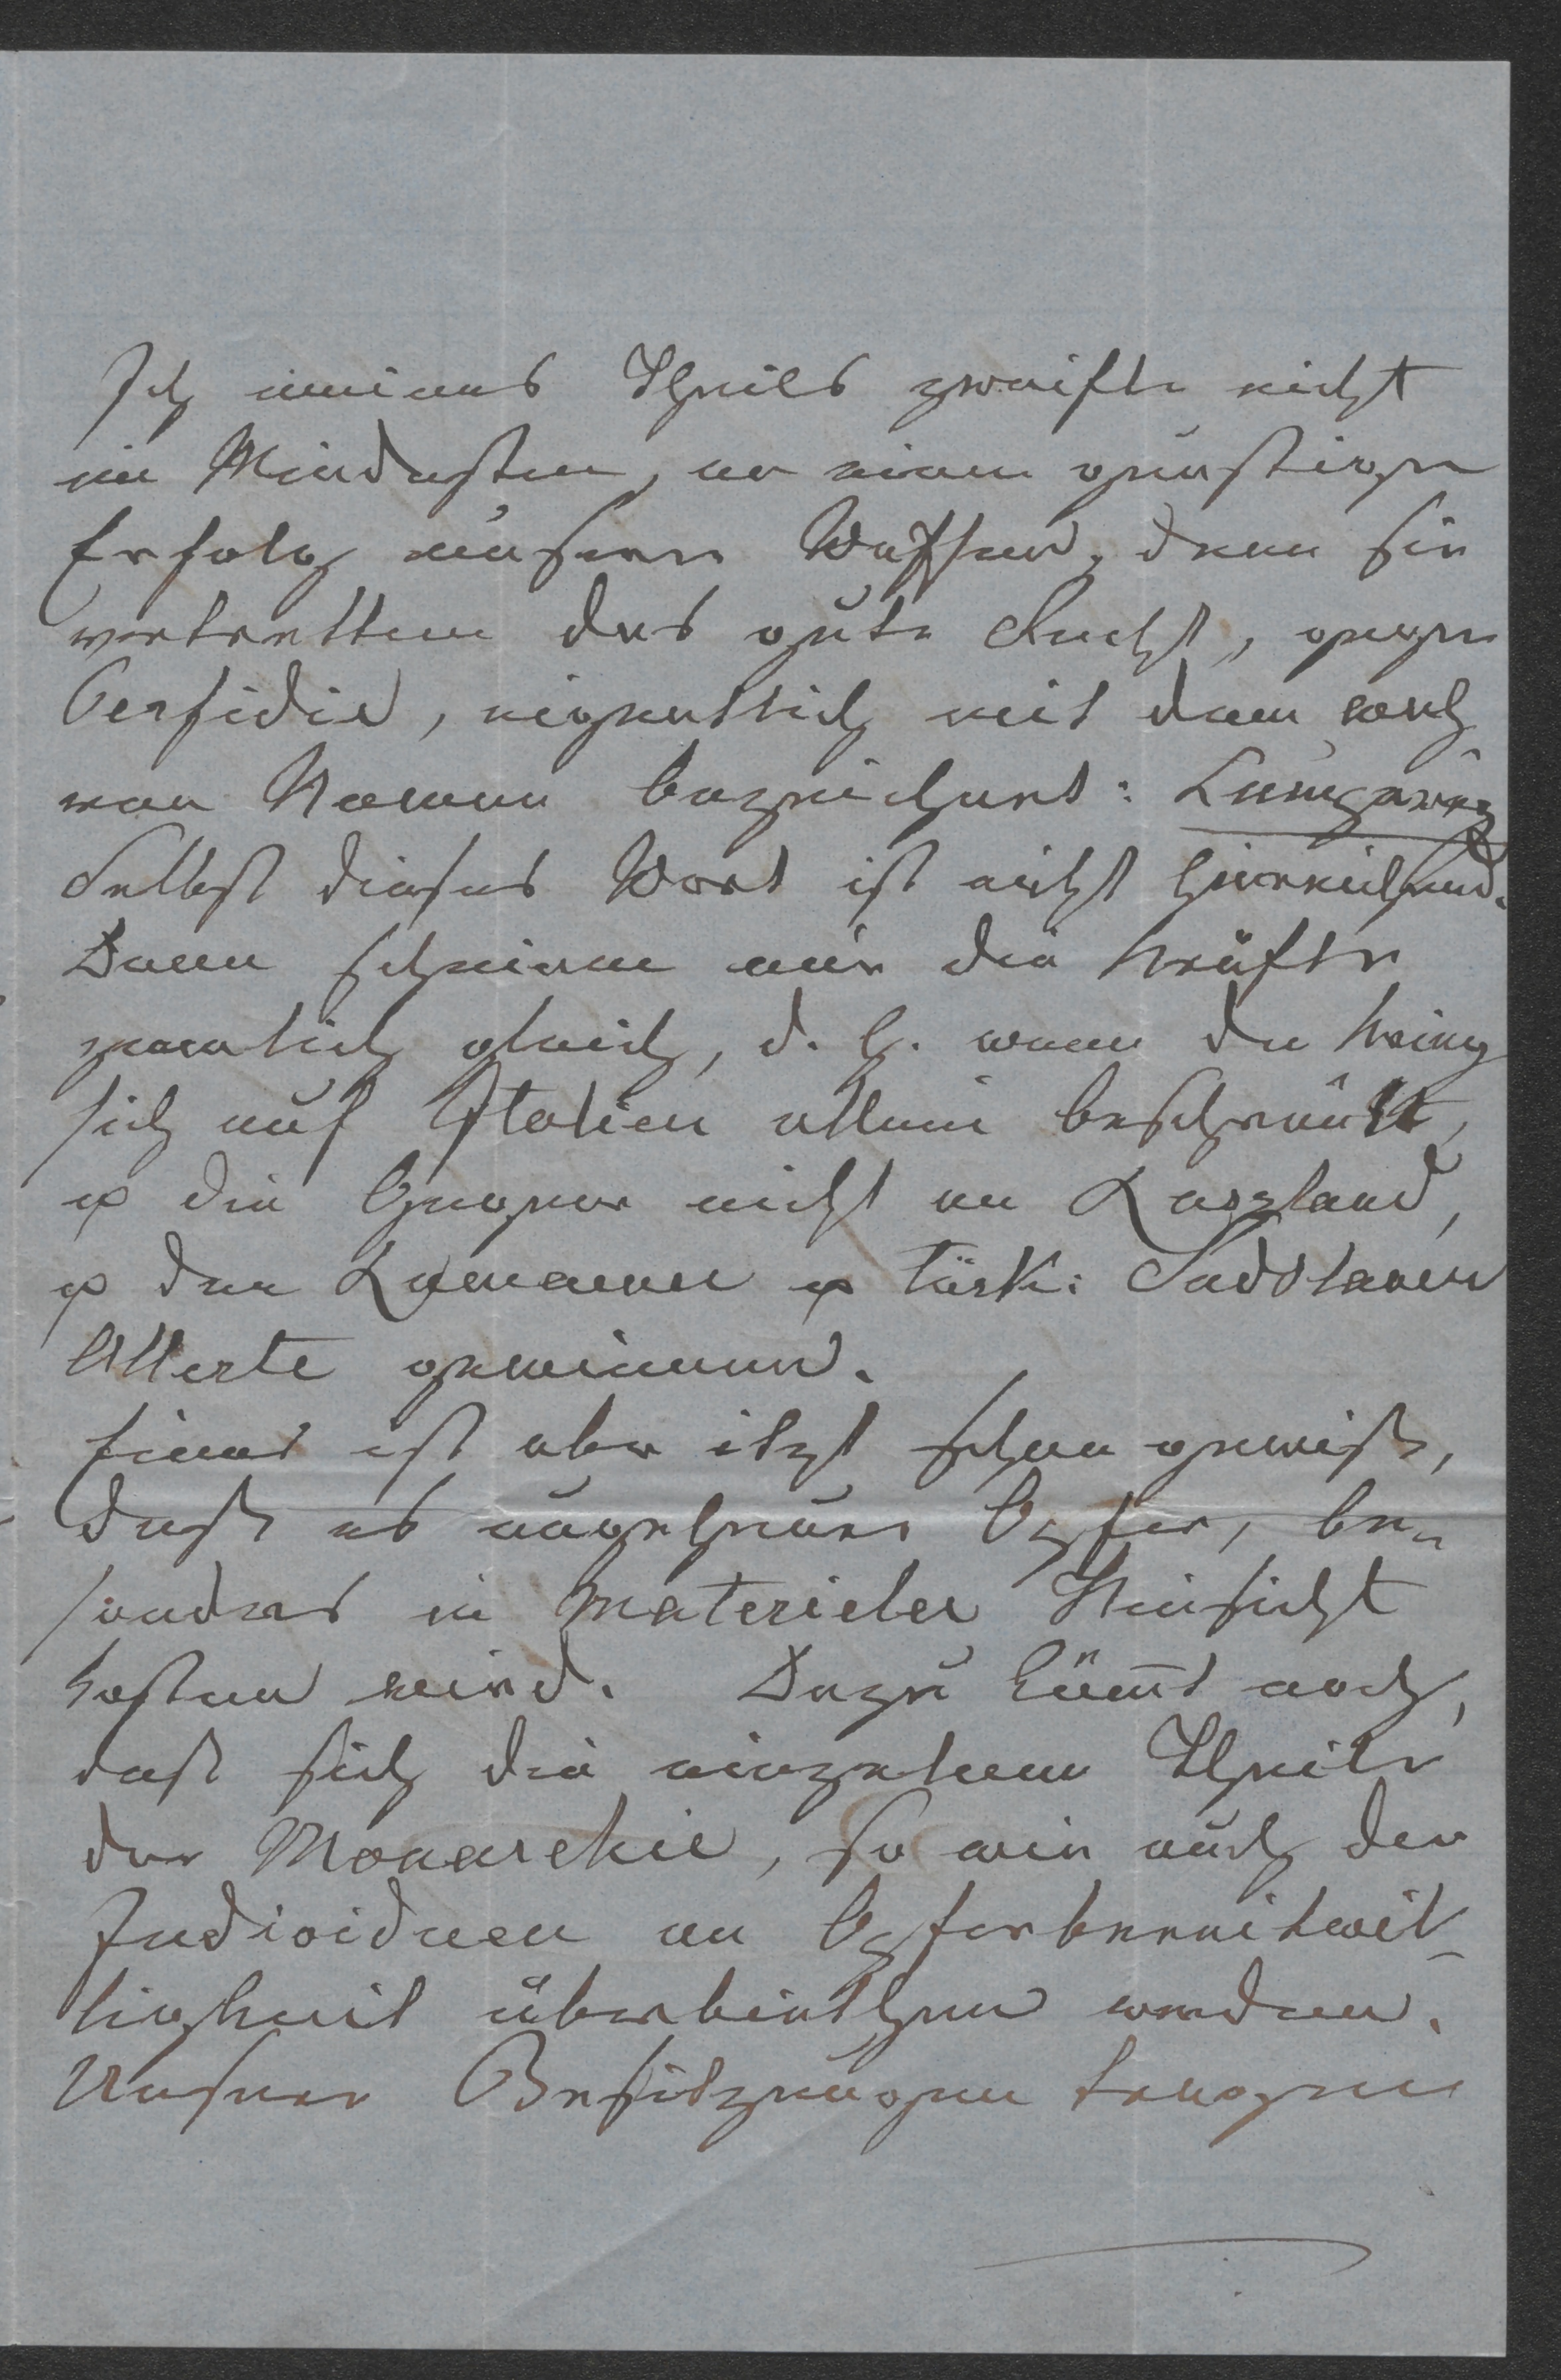 Ich meines Theils zweifle nicht
im Mindesten, an einem günstigen
Erfolg unserer Waffen, denn sie
vertretten das gute Recht, gegen
Perfidie, eigentlich mit dem
wahren Namen bezeichnet:
Selbst dieses Wort ist nicht hinreichend.
Dann scheinen mir die Kräfte
ziemlich gleich, d. h. wenn der Krieg
sich auf Italien allein beschränkt,
& die Gegner nicht an Russland,
& den Rumänen & türk: Südslaven
Allierte gewinnen.
Eines ist aber itzt schon gewiß,
daß es ungeheure Opfer, be-
sonders in materieler Hinsicht
kosten wird. Dazu kömt noch,
daß sich die einzelnen Theile
der Monarchie, so wie auch die
Individuen an Opferbereitwil-
ligkeit überbiethen werden.
Unsere Besitzungen tragen